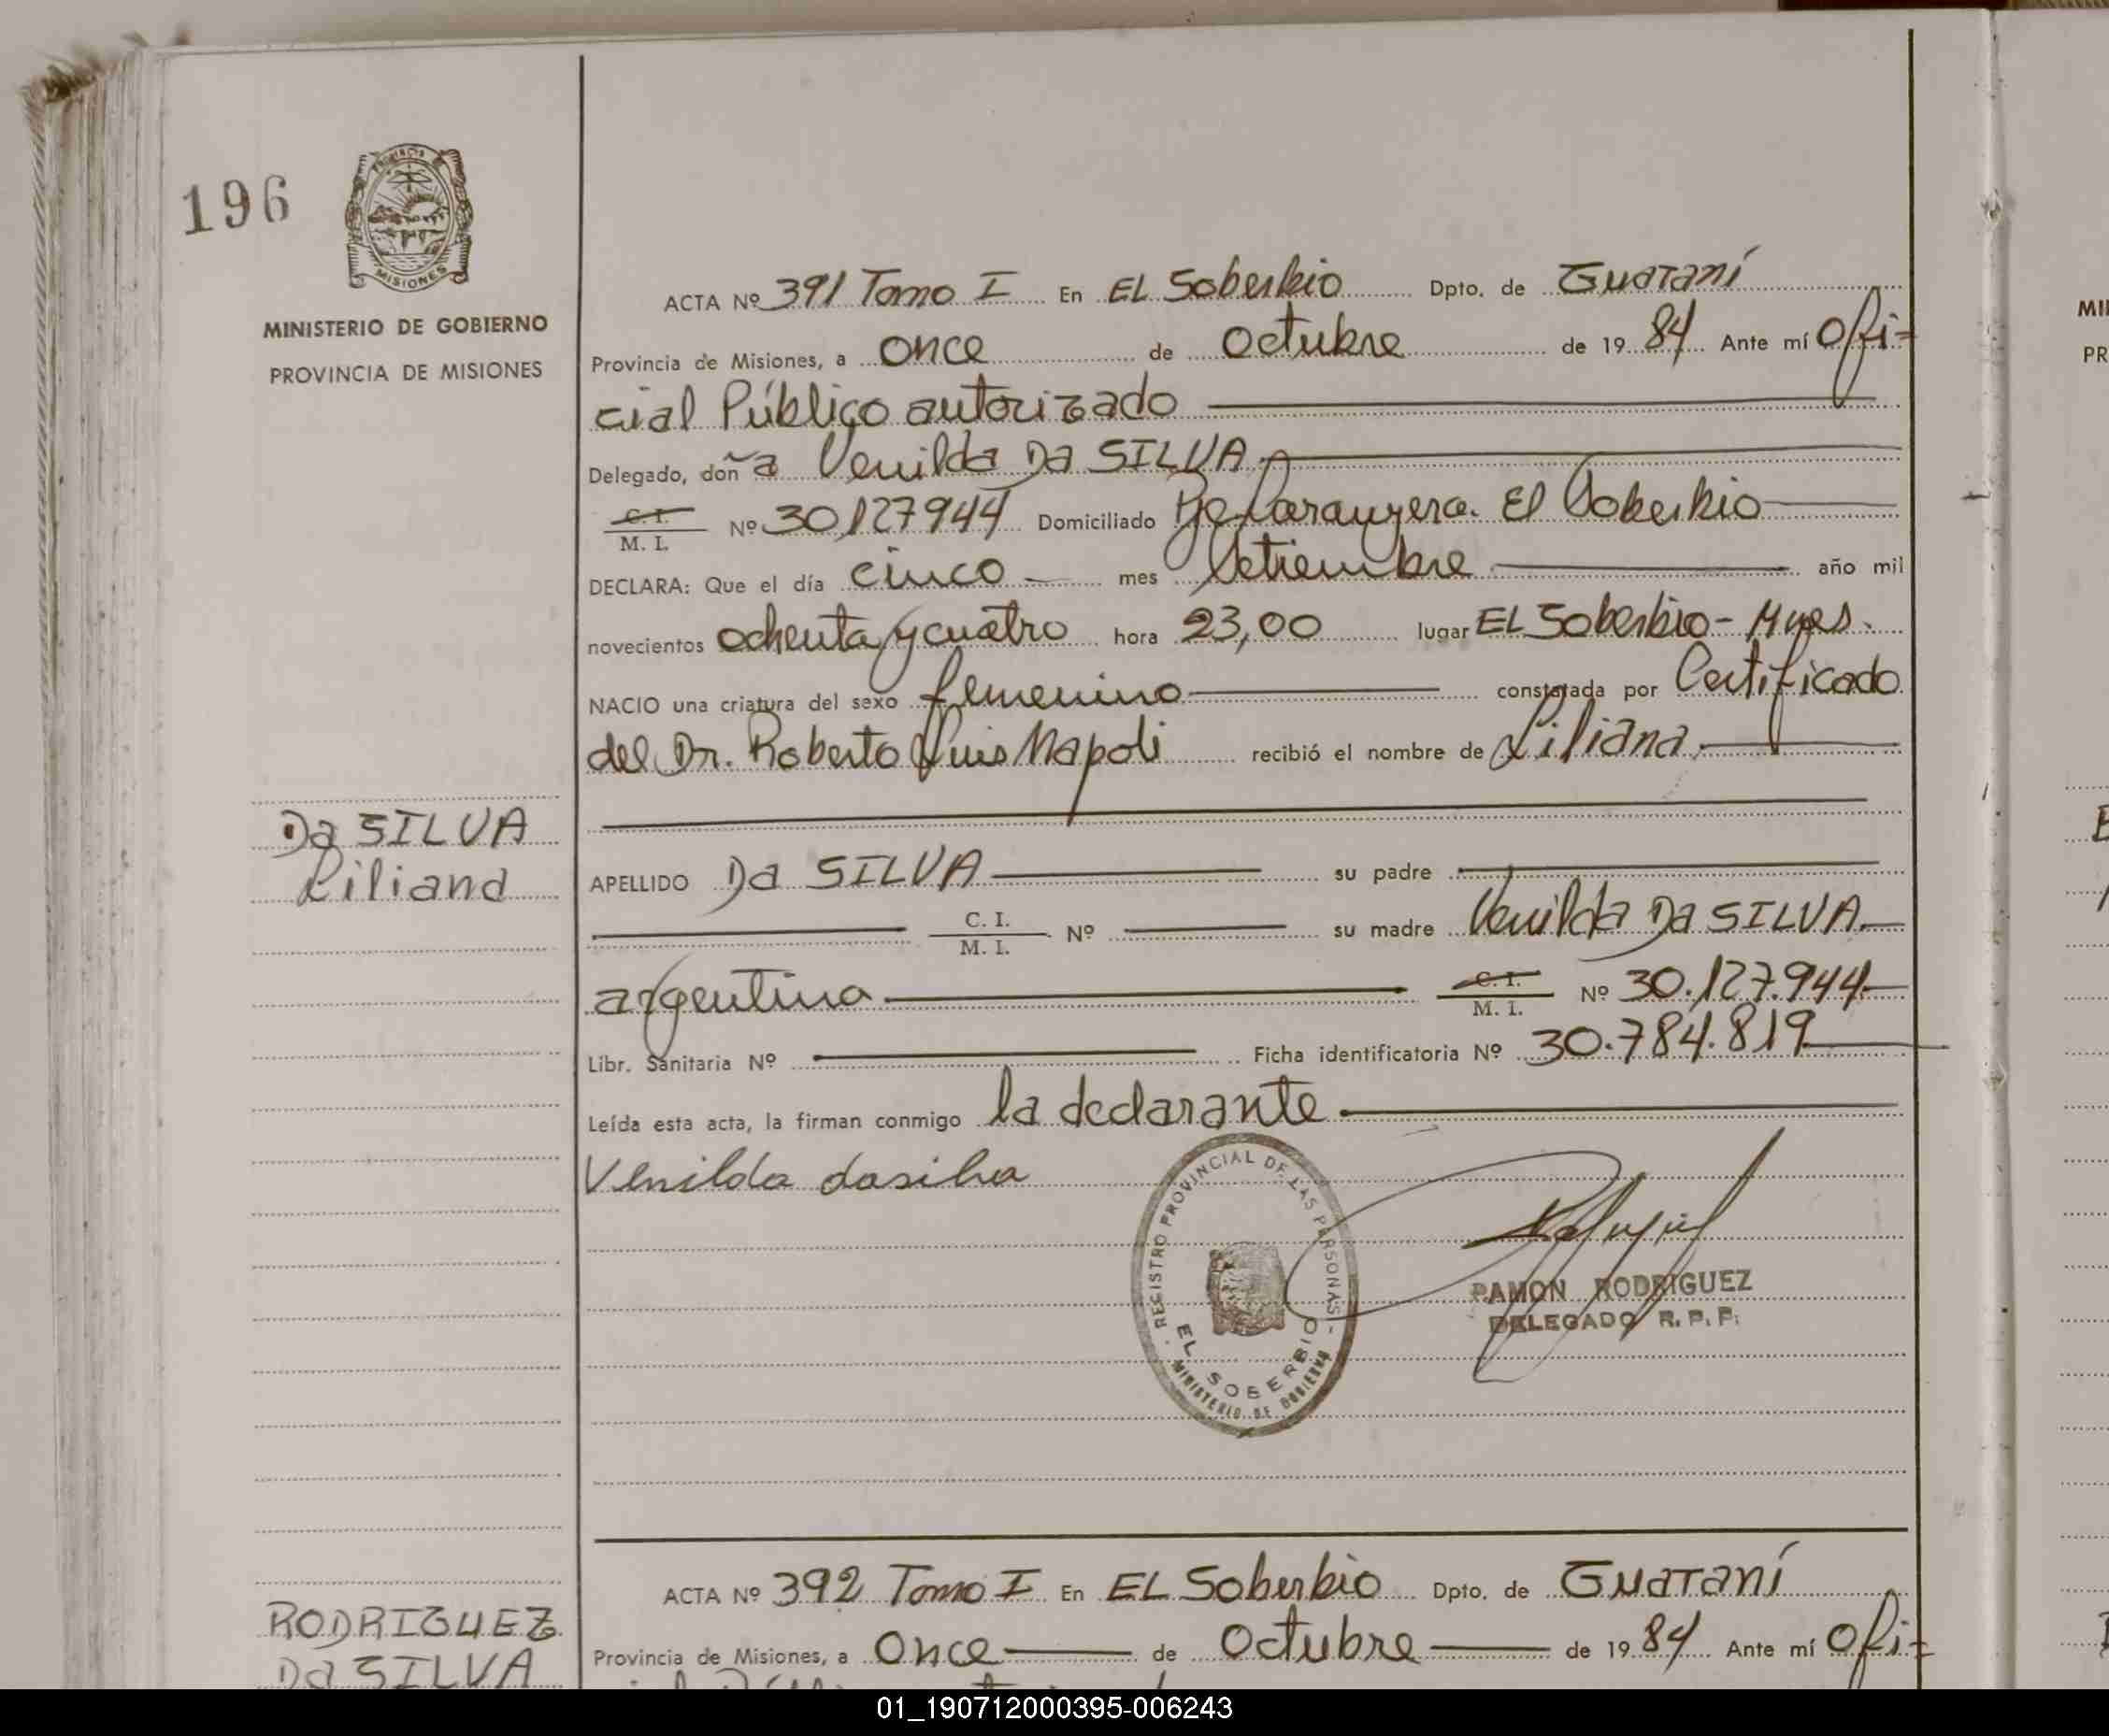 196
PROVINCIA
MISIONES
MINISTERIO DE GOBIERNO
PROVINCIA DE MISIONES
ACTA Nº 391 Tomo I En EL Soberbio Dpto. de Guaraní
Provincia de Misiones, a once de Octubre de 1984 Ante mí Ofi-
cial Público autorizado
Delegado, doña Venilda Da SILVA
C. I. / M. I. Nº 30.127944 Domiciliado Pje Laranyera. El Soberbio
DECLARA: Que el día cinco mes Setiembre año mil
novecientos ochenta y cuatro hora 23,00 lugar EL Soberbio - Mnes.
NACIO una criatura del sexo femenino constatada por Certificado
del Dr. Roberto Luis Napoli recibió el nombre de Liliana
Da SILVA
Liliana
APELLIDO Da SILVA su padre
C. I. / M. I. Nº su madre Venilda Da SILVA.
argentina C. I. / M. I. Nº 30.127.944
Libr. Sanitaria Nº Ficha identificatoria Nº 30.784.819
Leída esta acta, la firman conmigo la declarante
Venilda dasilva
REGISTRO PROVINCIAL DE LAS PERSONAS
EL SOBERBIO
MINISTERIO DE GOBIERNO
RAMON RODRIGUEZ
DELEGADO R. P. P.
ACTA Nº 392 Tomo I En EL Soberbio Dpto. de Guaraní
RODRIGUEZ
Da SILVA
Provincia de Misiones, a Once de Octubre de 1984 Ante mí Ofi-
01_190712000395-006243